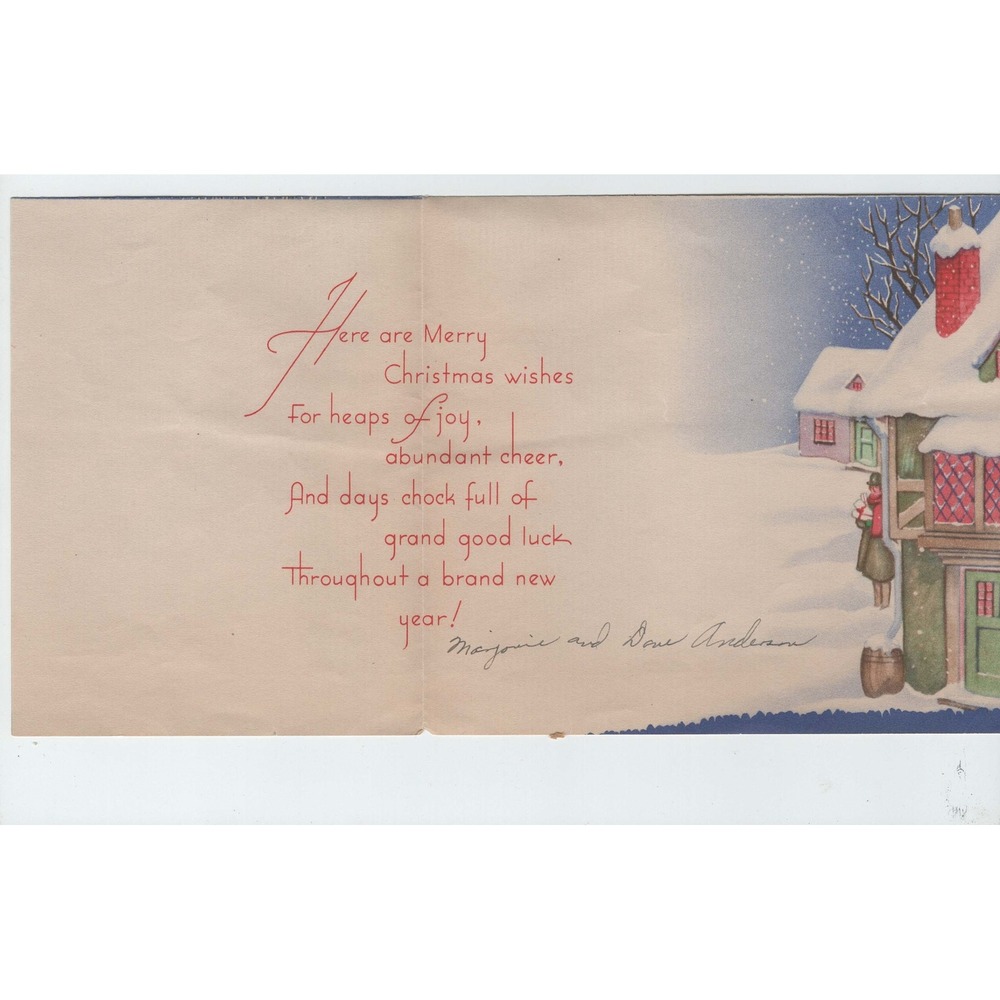 Here are Merry
Christmas wishes
For heaps of joy,
abundant cheer,
And days chock full of
grand good luck
Throughout a brand new
year!
Marjorie and Dave Anderson